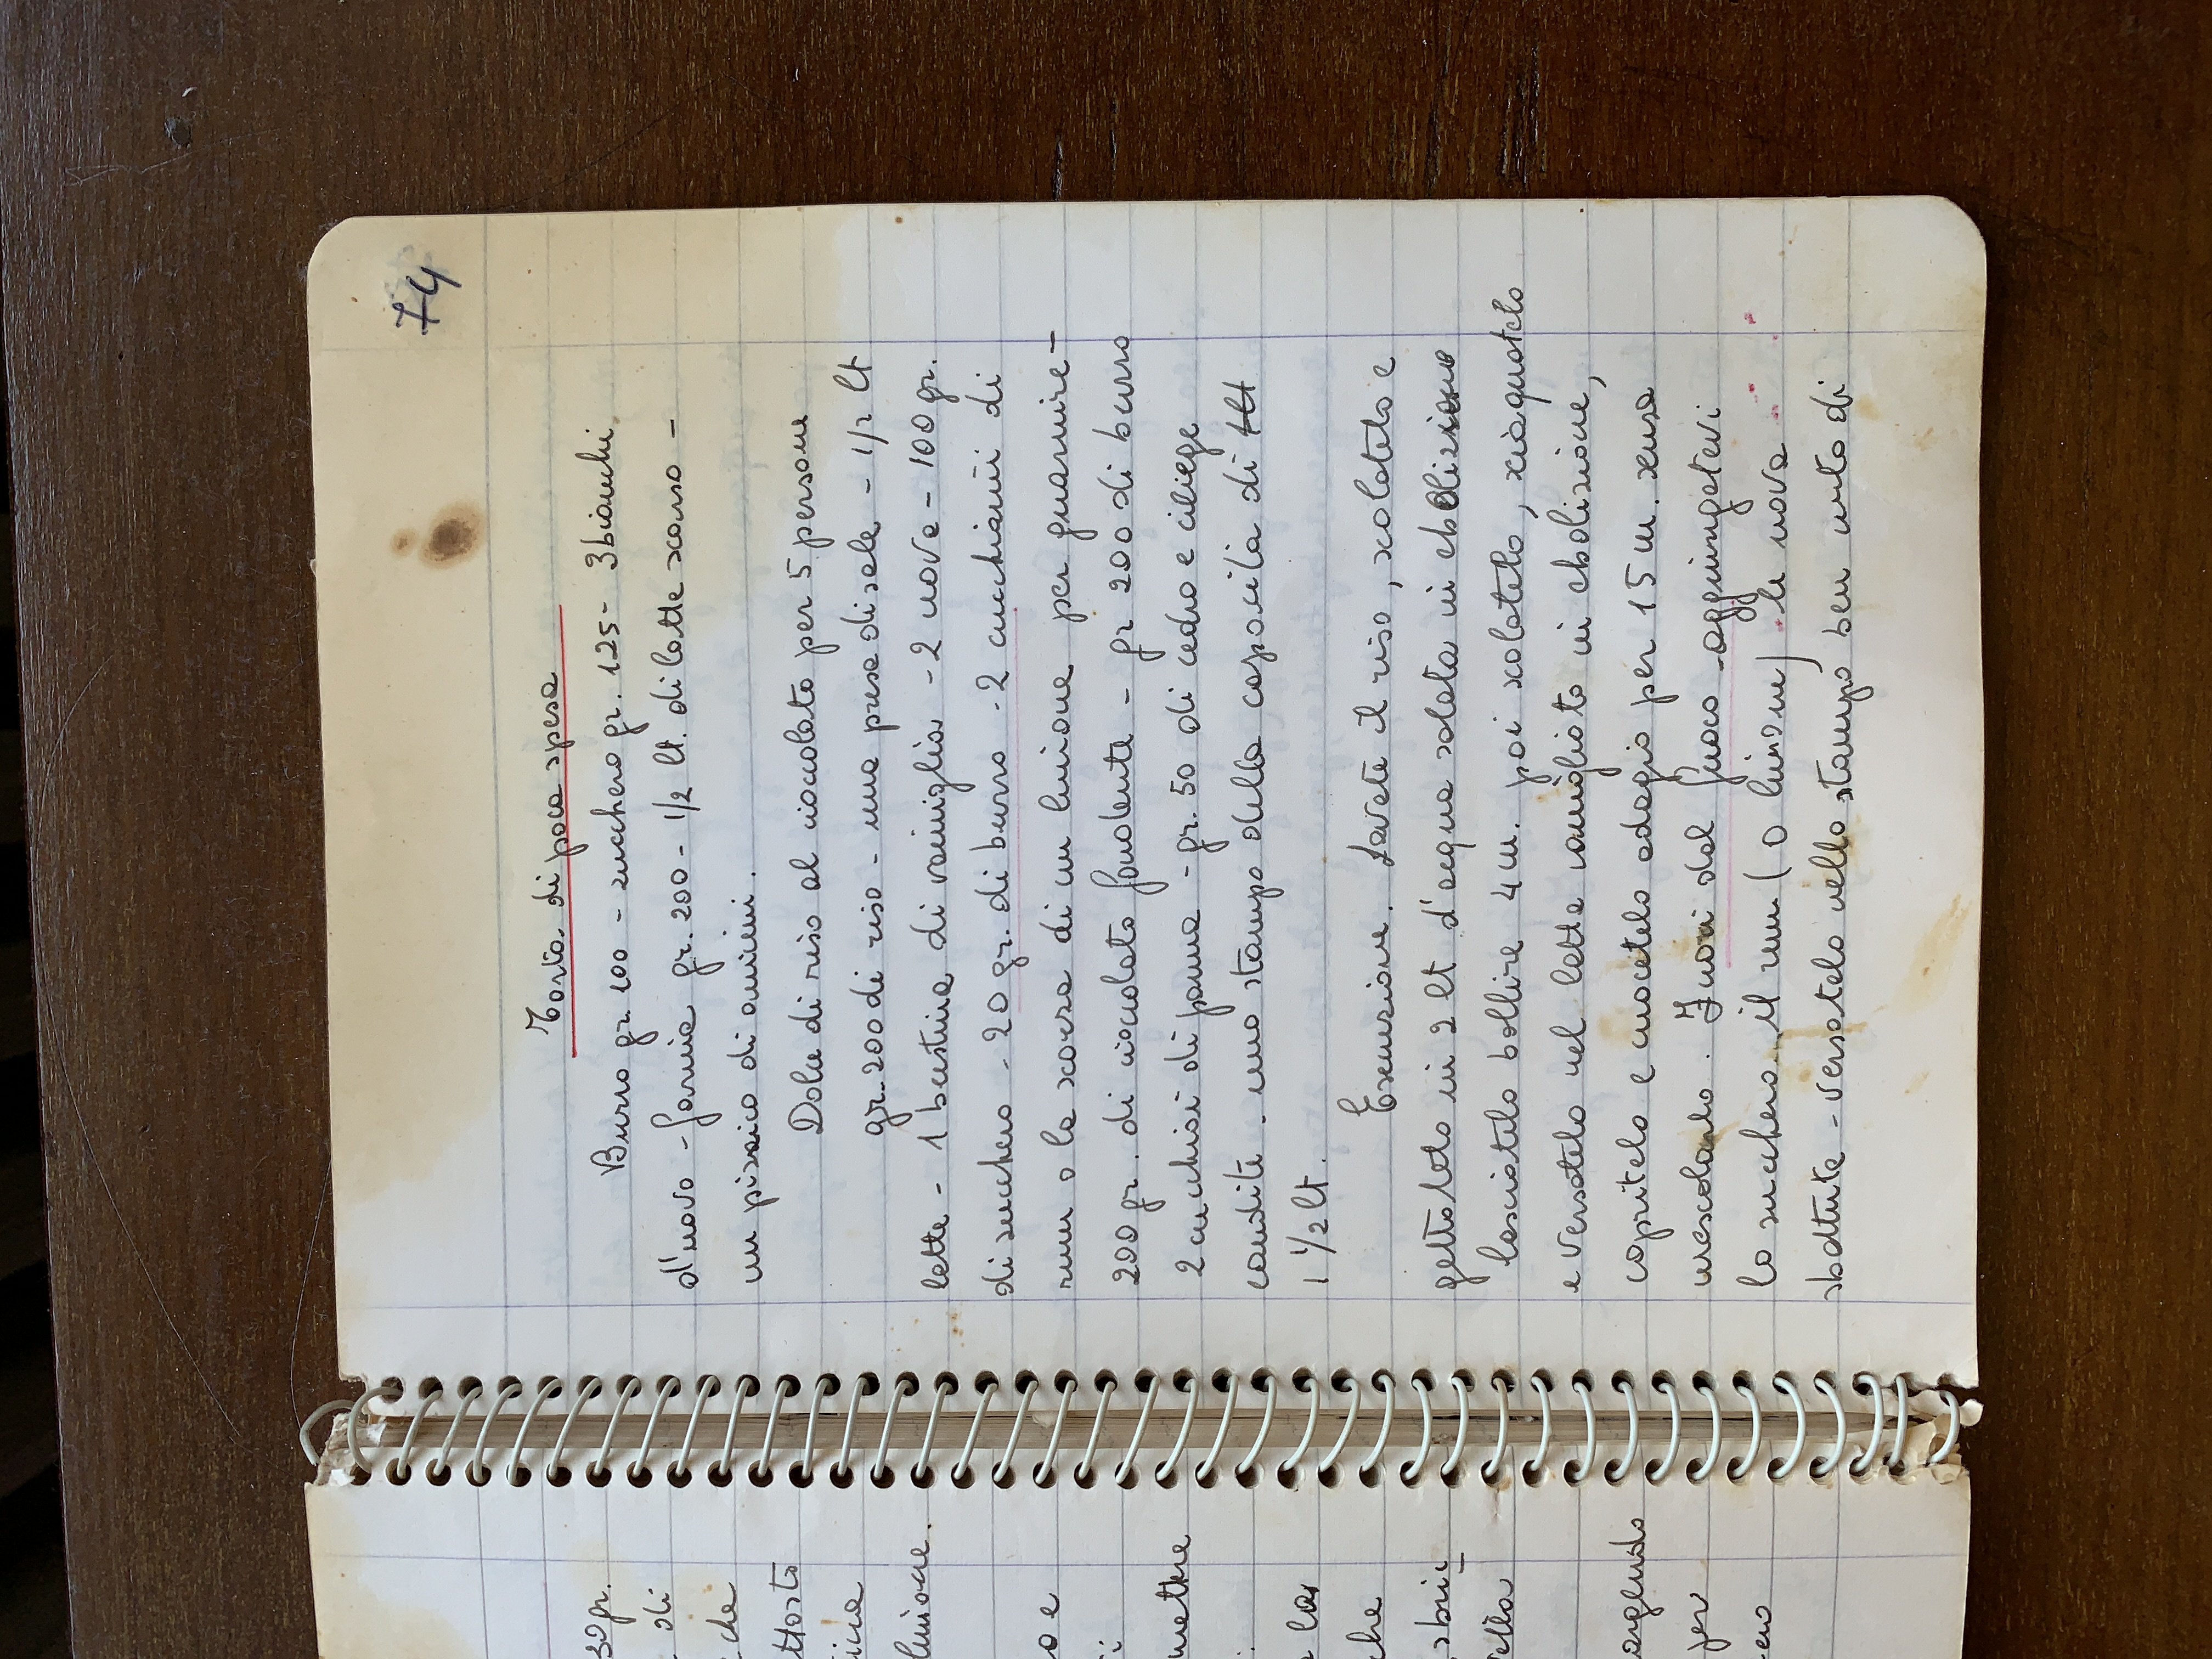 30 gr.
di
che
ttosto
limone.
o e
mettere
la
che
sbri
della
argendo
per
74
Torta di poca spesa
Burro gr. 100 - zucchero gr. 125 - 3 bianchi
d'uovo - farina gr. 200 - 1/2 lt. di latte scarso -
un pizzico di amicini.
Dolce di riso al cioccolato per 5 persone
gr. 200 di riso - una presa di sale - 1/2 lt
latte - 1 bustina di vaniglia - 2 uova - 100 gr.
di zucchero - 20 gr. di burro - 2 cucchiaini di
rum o la scorza di un limone per guarnire -
200 gr. di cioccolato fondente - gr 200 di burro
2 cucchiai di panna - gr. 50 di cedro e ciliege
candite. uno stampo della capacità di 1 lt
1 1/2 lt.
Esecuzione. Lavate il riso, scolatelo e
gettatelo in 2 lt d'acqua salata in ebolizione
lasciatelo bollire 4 m. poi scolatelo, sciaquatelo
e versatelo nel latte vanigliato in ebolizione,
copritelo e cuocetelo adagio per 15 m. senza
mescolarlo. Fuori dal fuoco - aggiungetevi
lo zucchero - il rum (o limone) - le uova
sbattute - versatelo nello stampo ben unto di